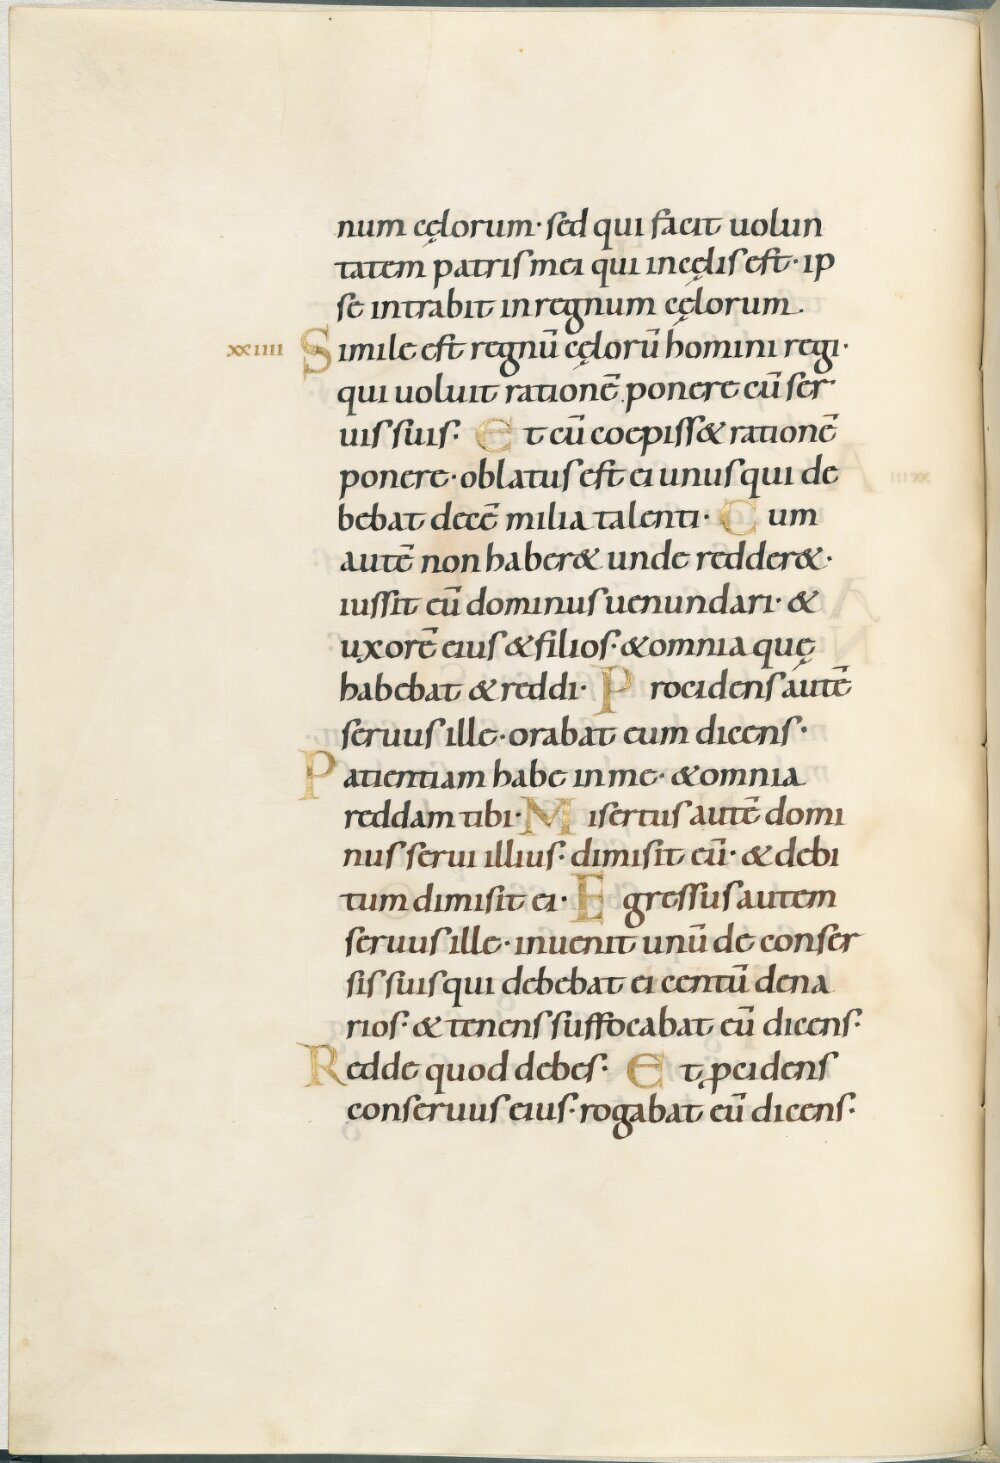 num cęlorum· sed qui facit uolun
tatem patris mei qui in cęlis est· ip
se intrabit in regnum cęlorum.
xxiiii Simile est regnū cęlorū homini regi·
qui uoluit rationē ponere cū ser
uis suis· Et cū coepiss& rationē
ponere· oblatus est ei unus qui de
bebat decē milia talenti· Cum
autē non haber& unde redder&·
iussit eū dominus uenundari· &
uxorē eius & filios· & omnia quę
habebat & reddi· Procidens autē
seruus ille· orabat eum dicens·
Patientiam habe in me· & omnia
reddam tibi· Misertus autē domi
nus serui illius· dimisit eū· & debi
tum dimisit ei· Egressus autem
seruus ille· inuenit unū de conser
sis suis qui debebat ei centū dena
rios· & tenens suffocabat eū dicens·
Redde quod debes· Et ꝓcidens
conseruus eius· rogabat eū dicens·